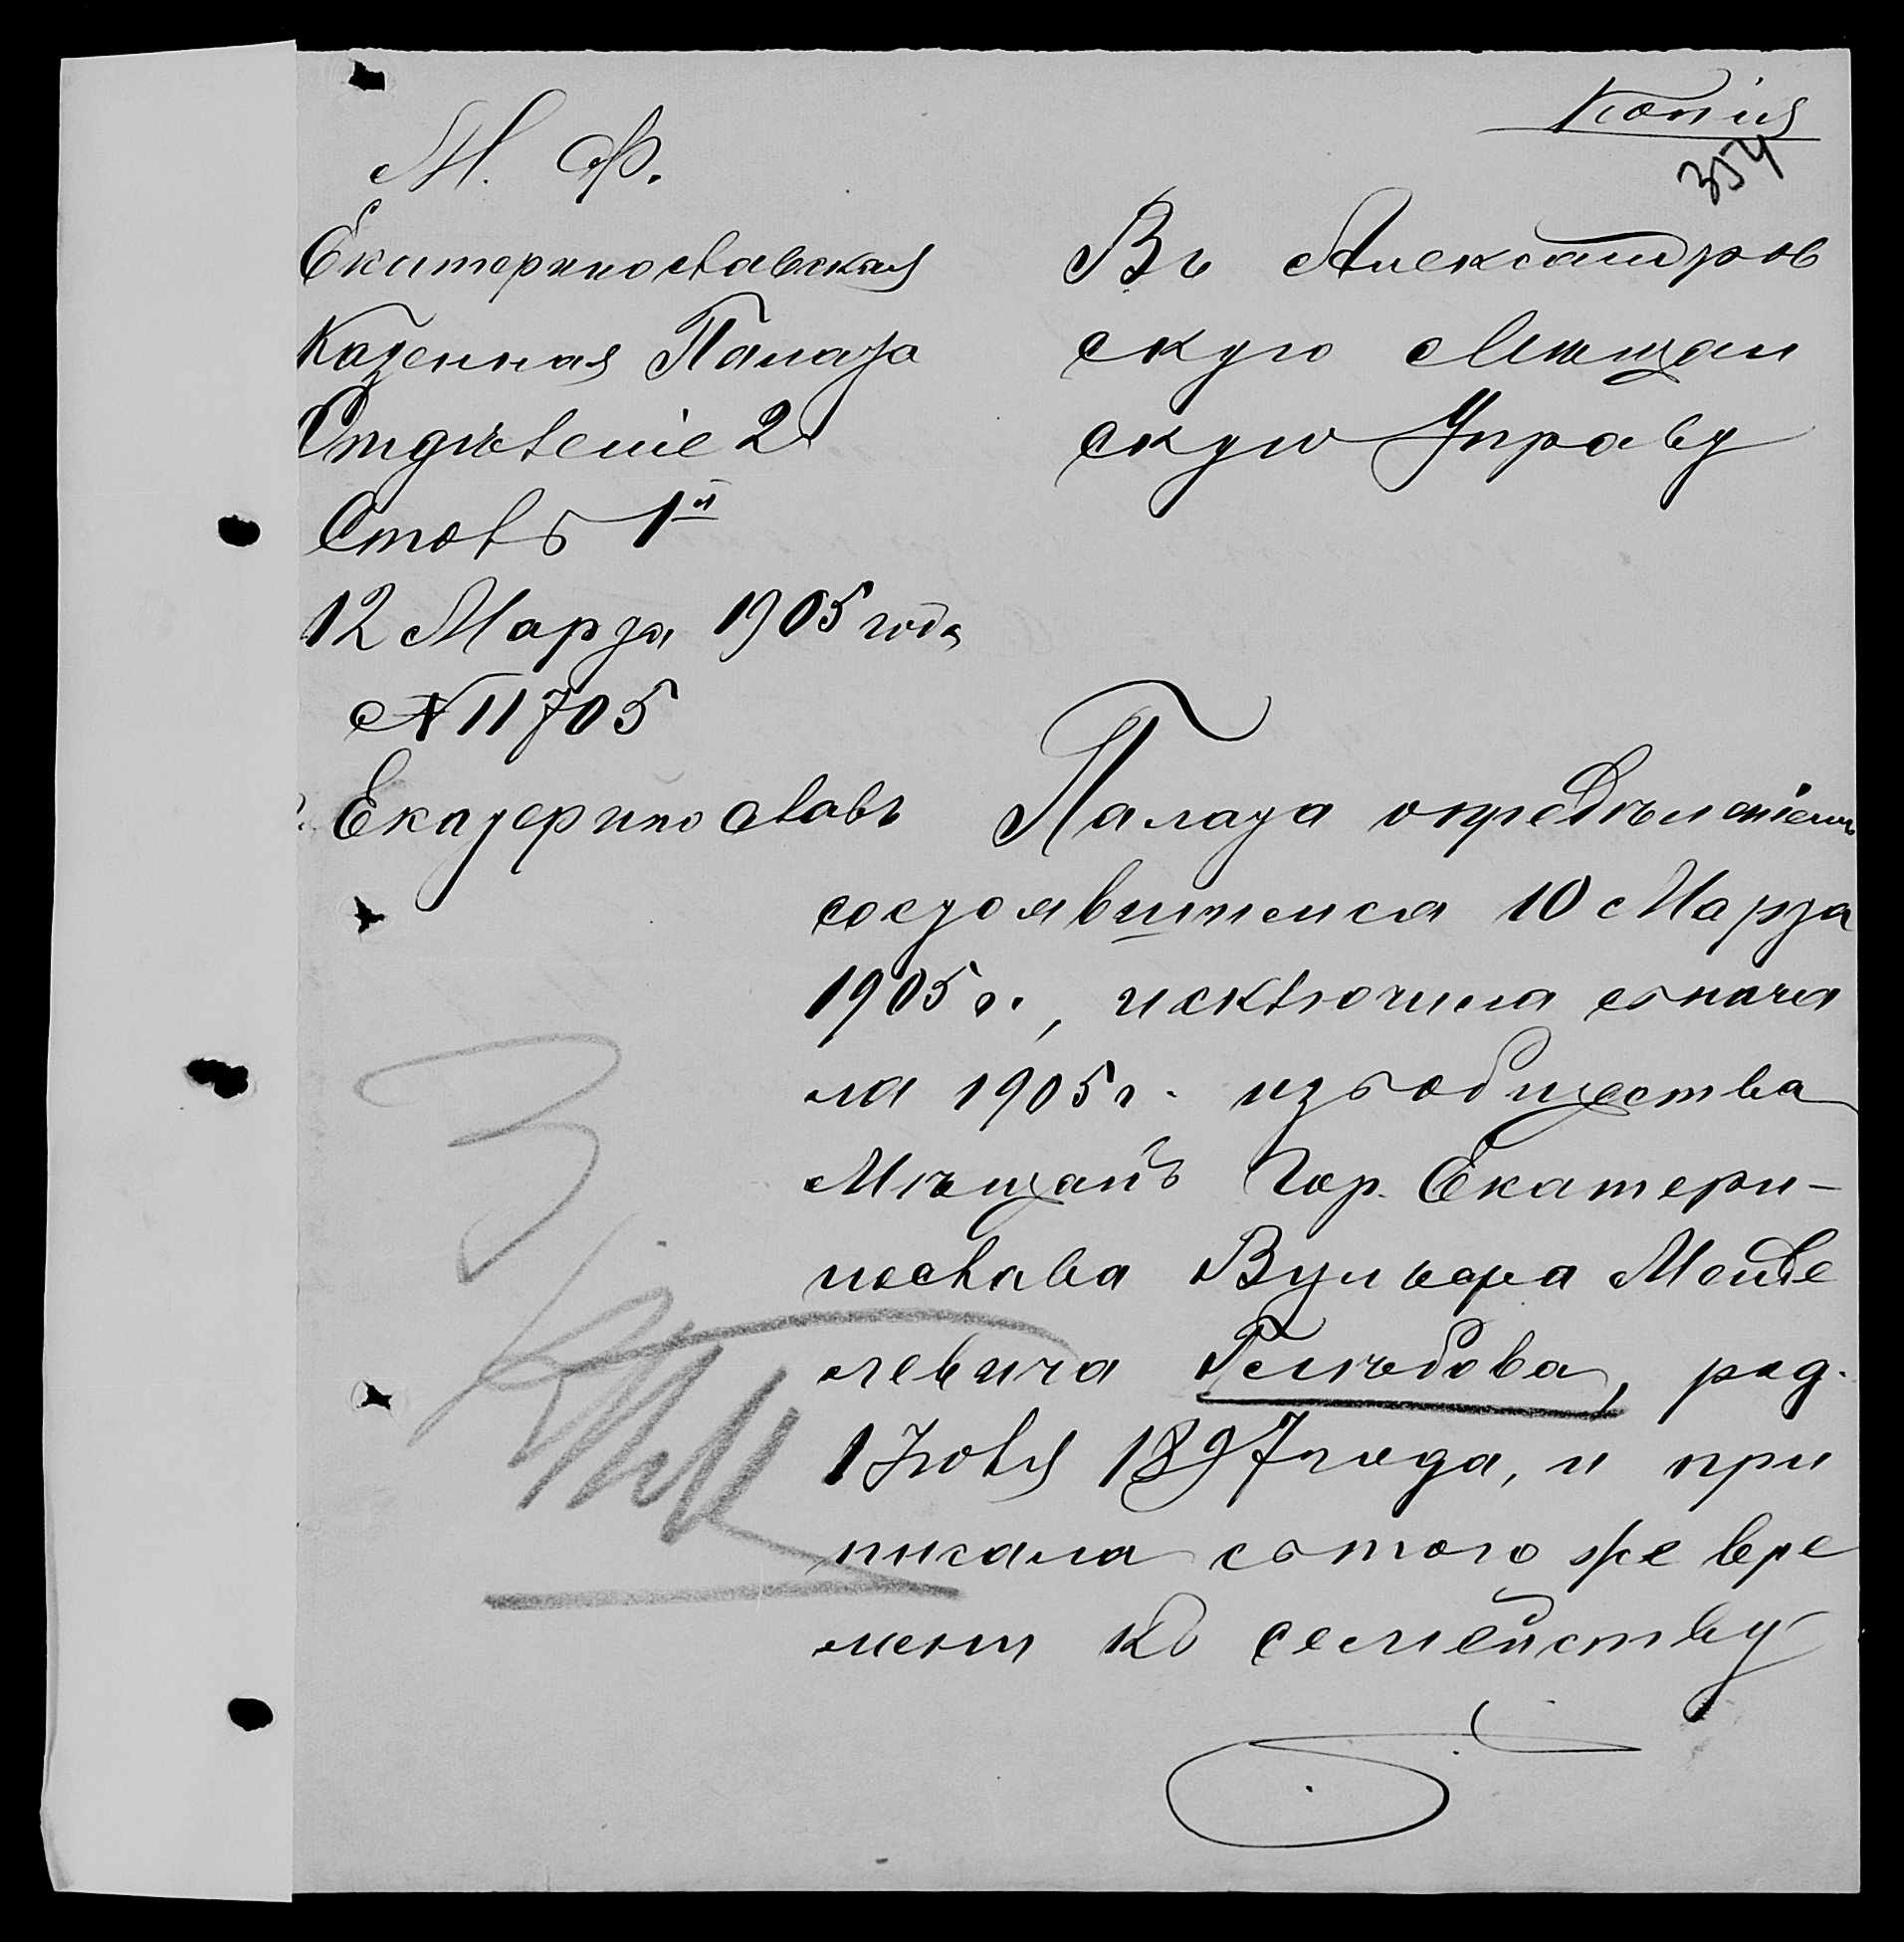 Копія
354
М. Ф.
Екатеринославская
Казенная Палата
Отдѣленіе 2
Столъ 1й
12 Марта 1905 года
№ 11705
Екатеринославъ
Въ Александров
скую Мѣщан
скую Управу
Палата опредѣленіемъ
состоявшимся 10 Марта
1905 г., исключила съ нача
ла 1905 г. изъ общества
Мѣщанъ Гор. Екатери-
нослава Вульфа Менде
левича Голубова, род.
1 Іюля 1897 года, и при
писала съ того же вре
мени къ семейству